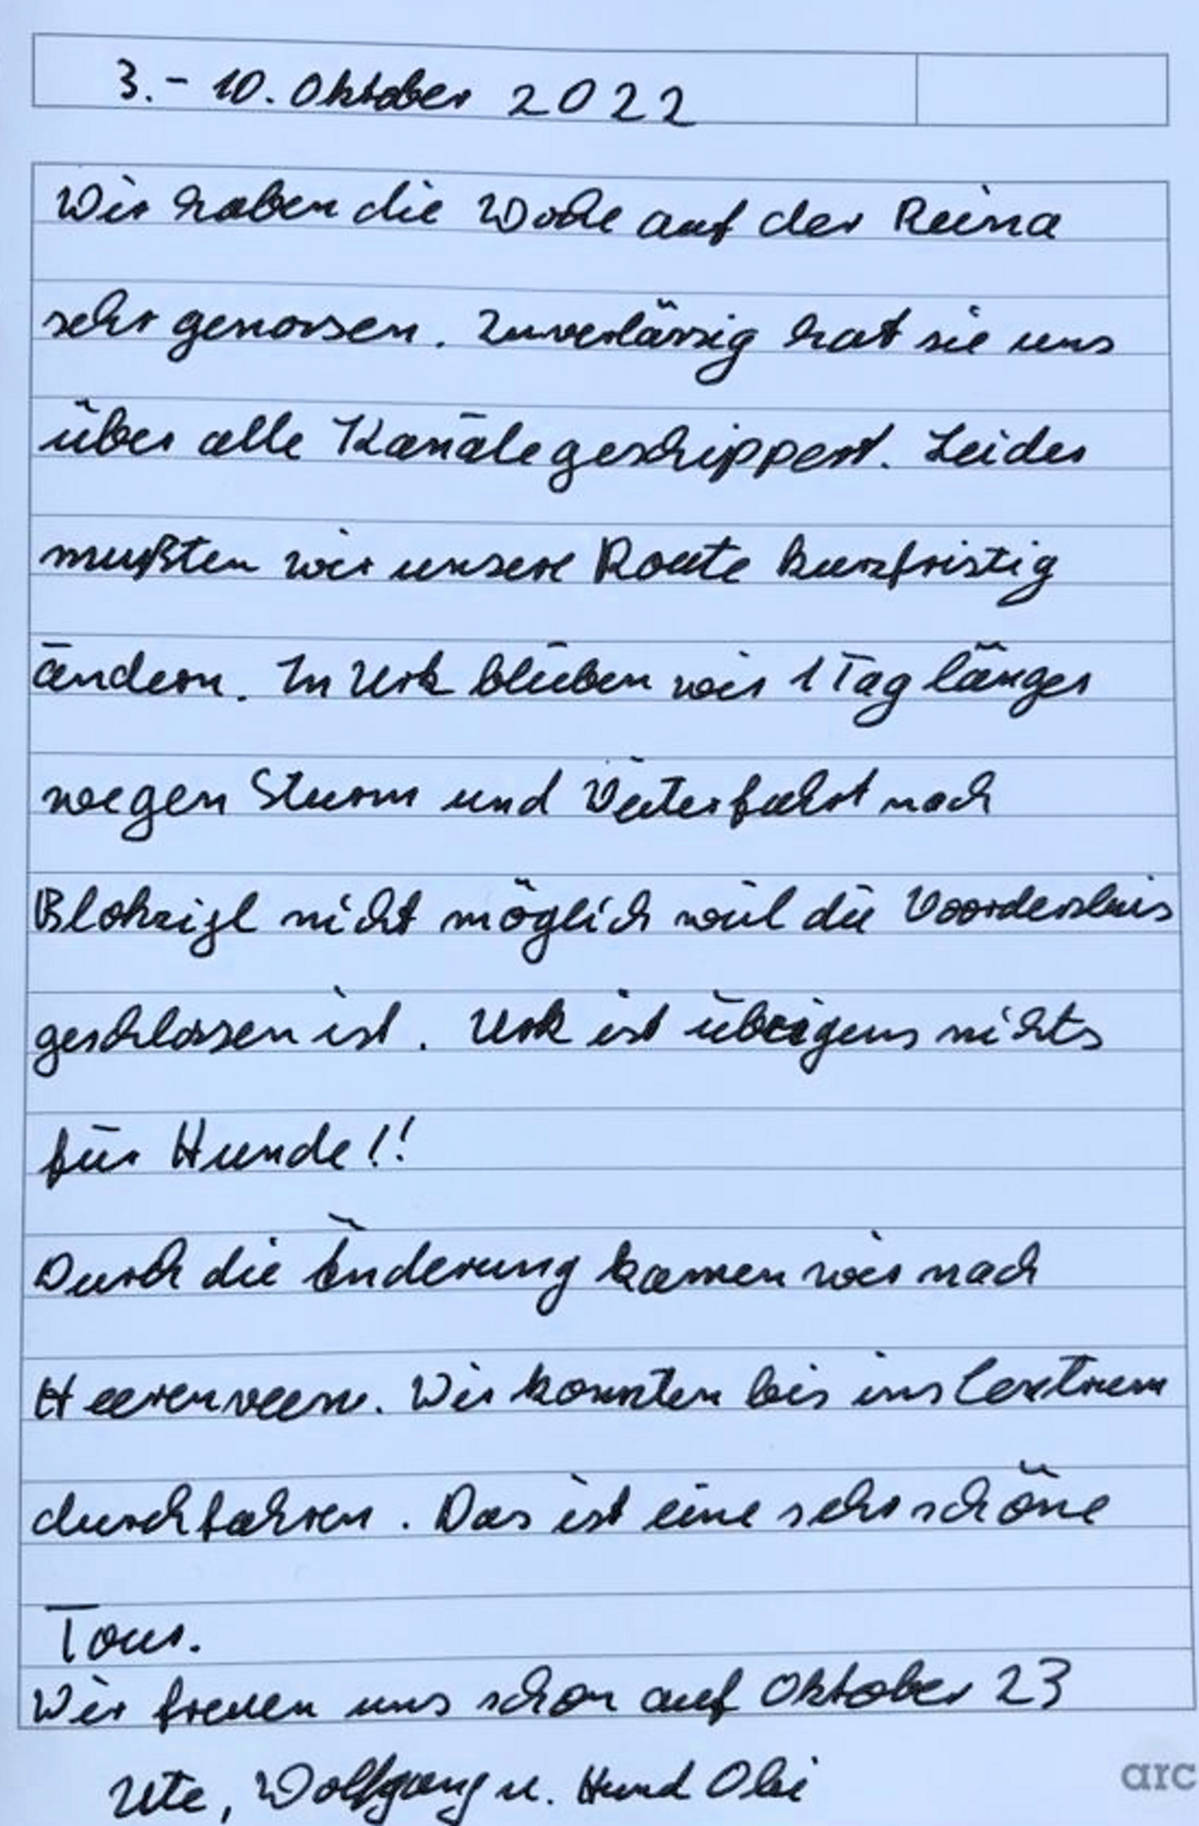 3. - 10. Oktober 2022
Wir haben die Woche auf der Reina
sehr genossen. Zuverlässig hat sie uns
über alle Kanäle geschippert. Leider
mußten wir unsere Route kurzfristig
ändern. In Urk blieben wir 1 Tag länger
wegen Sturm und Weiterfahrt nach
Blokzijl nicht möglich weil die Voordersluis
geschlossen ist. Urk ist übrigens nichts
für Hunde!!
Durch die Änderung kamen wir nach
Heerenveen. Wir konnten bis ins Centrum
durchfahren. Das ist eine sehr schöne
Tour.
Wir freuen uns schon auf Oktober 23
Ute, Wolfgang u. Hund
arc